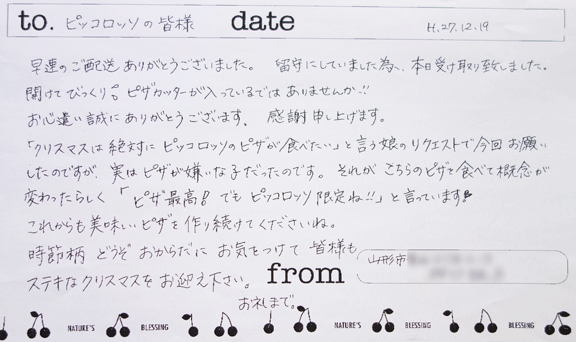 to. ピッコロッソの皆様 date H.27.12.19
早速のご配送ありがとうございました。 留守にしていました為、本日受け取り致しました。
開けてびっくり!! ピザカッターが入っているではありませんか!!
お心遣い誠にありがとうございます。 感謝申し上げます。
「クリスマスは絶対にピッコロッソのピザが食べたい」と言う娘のリクエストで今回お願い
したのですが、実はピザが嫌いな子だったのです。それがこちらのピザを食べて概念が
変わったらしく「ピザ最高!でもピッコロッソ限定ね!!」と言っています!
これからも美味しいピザを作り続けてくださいね。
時節柄 どうぞおからだに お気をつけて 皆様も
ステキなクリスマスをお迎え下さい。
from 山形市
お礼まで。
NATURE'S BLESSING NATURE'S BLESSING